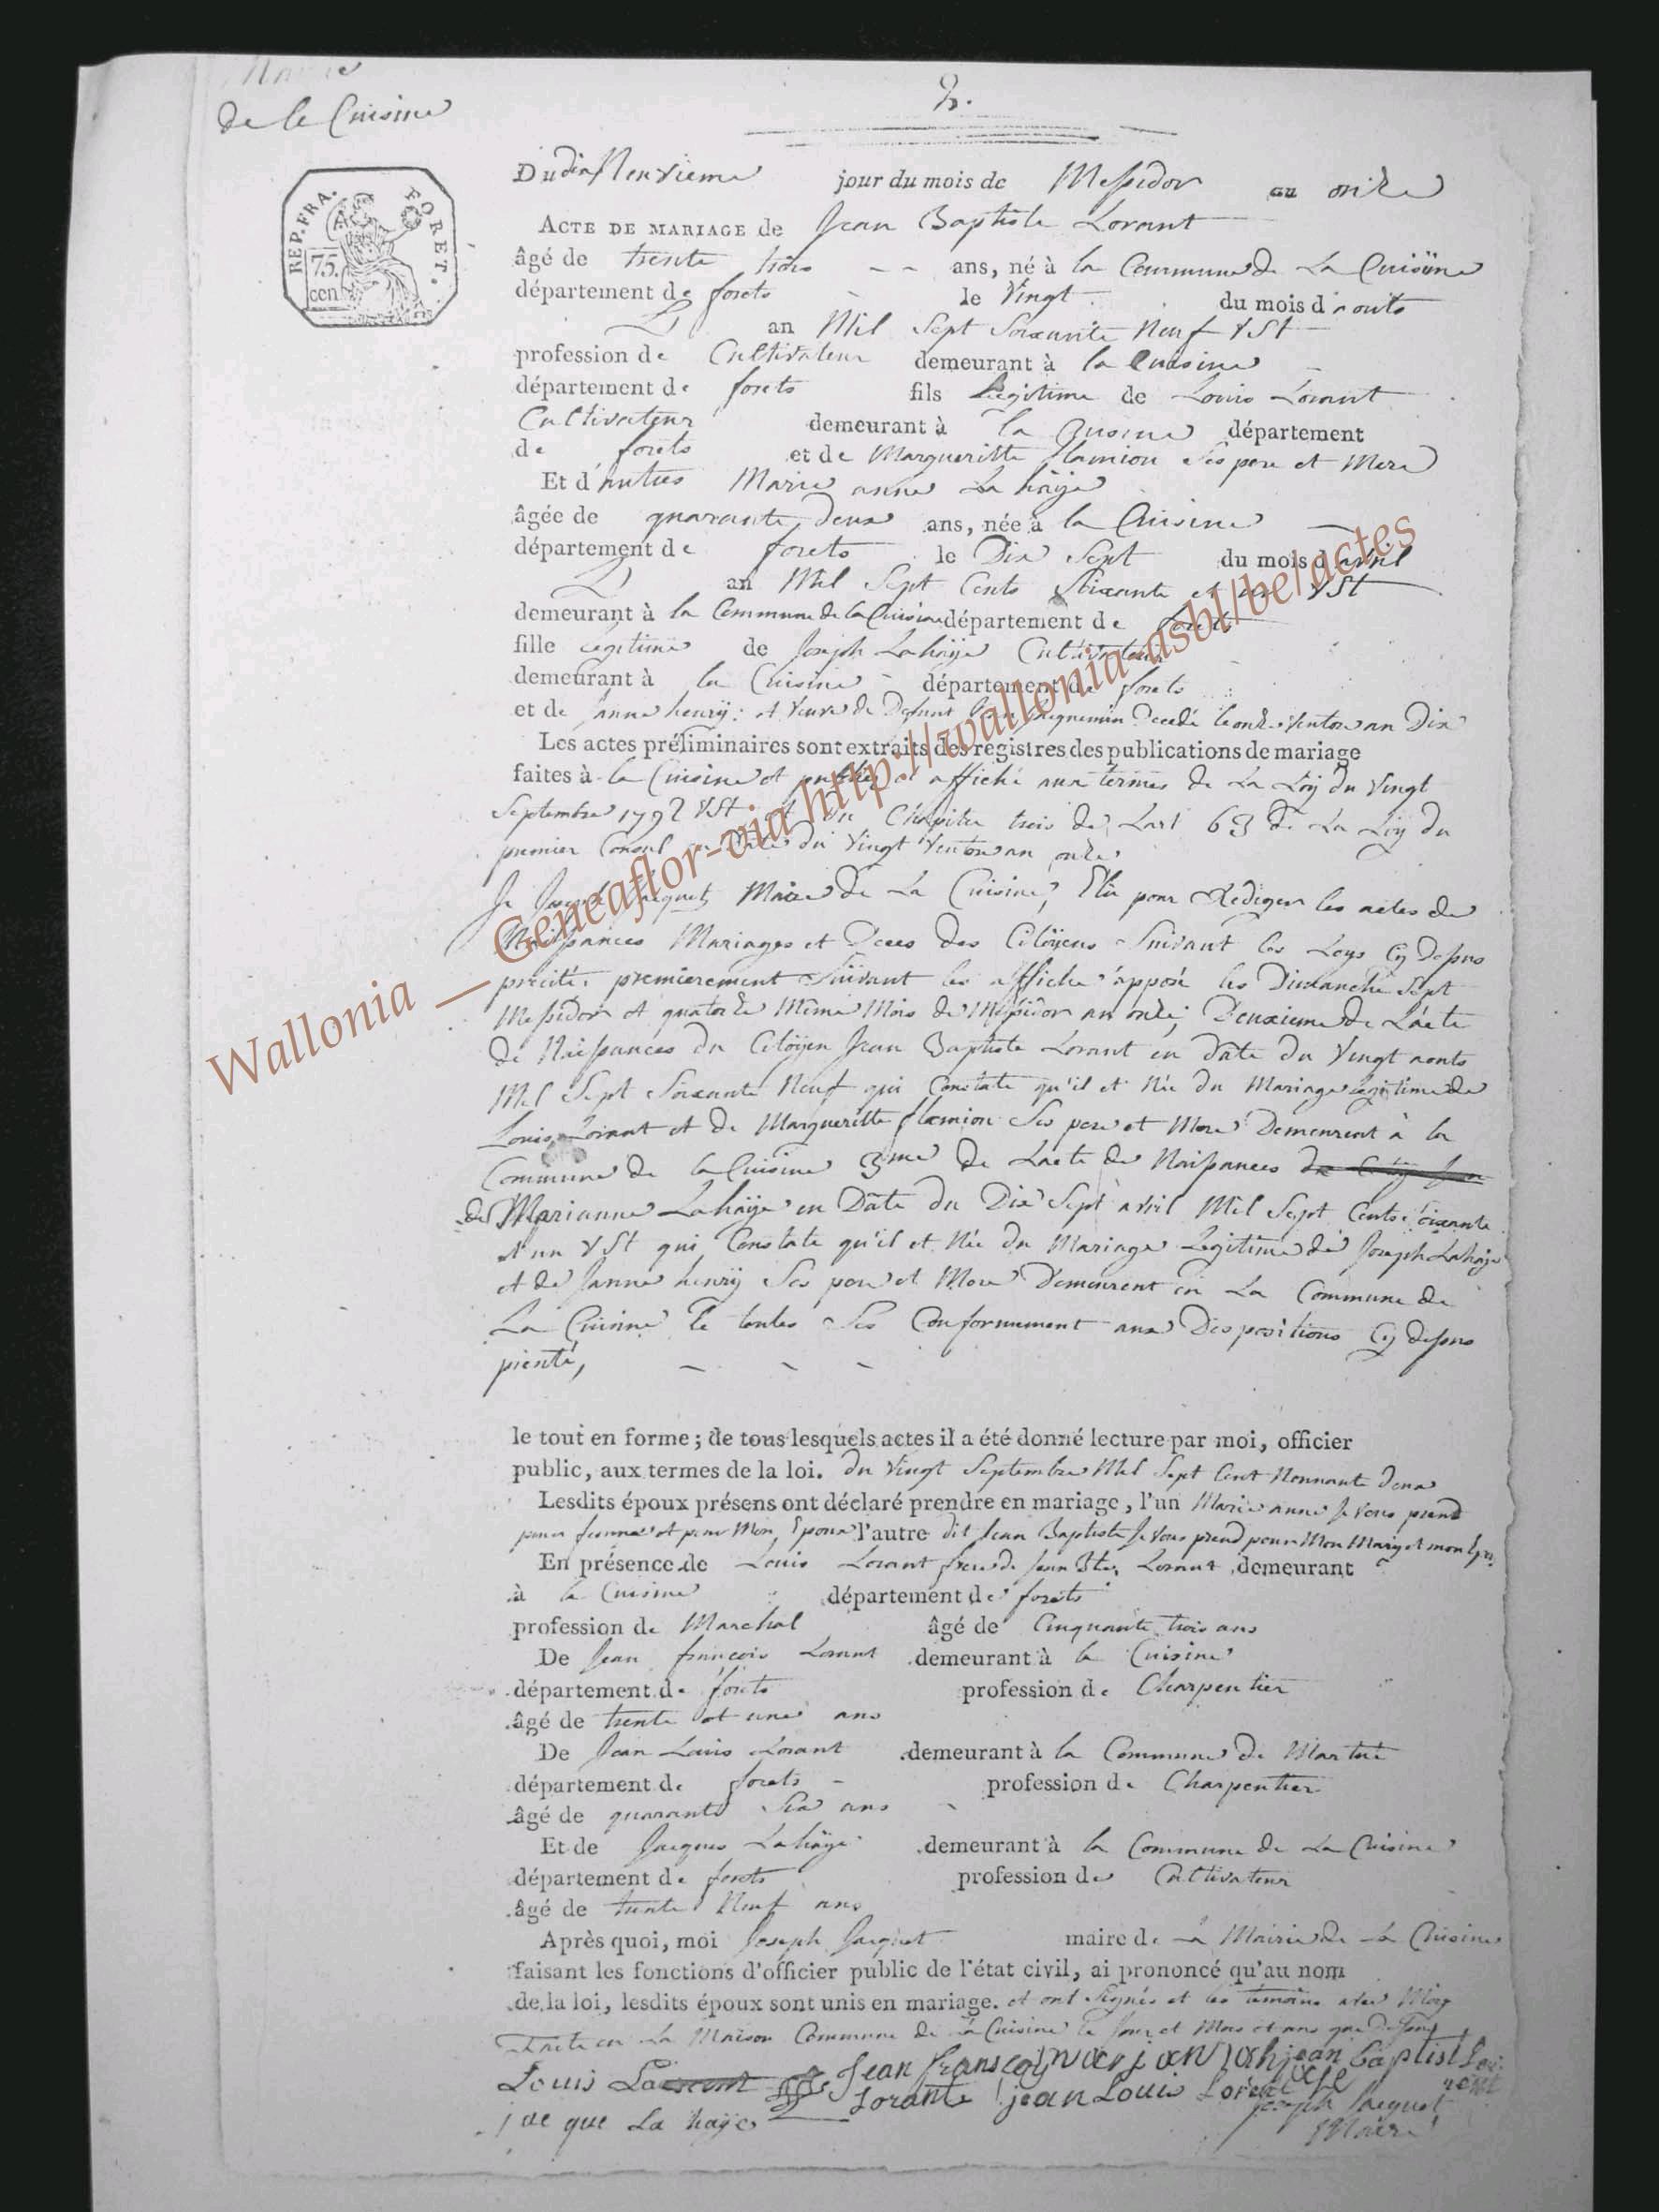 de la Cuisine
2.
REP. FRA. FORET.
75.
cen
Du dix neuvieme jour du mois de Messidor an onze
ACTE DE MARIAGE de Jean Baptiste Lorant
âgé de trente trois ans, né à la Commune de La Cuisine
département de forets le Vingt du mois d'aouts
an Mil Sept Soixante Neuf VSt
profession de Cultivateur demeurant à la Cuisine
département de forets fils Legitime de Louis Lorant
Cultivateur demeurant à la Cuisine département
de forets et de Margueritte flamion Ses pere et Mere
Et d'autres Marie anne La haÿe
âgée de quarante deux ans, née à la Cuisine
département de forets le Dix Sept du mois d avril
an Mil Sept Cents Soixante et un VSt
demeurant à la Commune de la Cuisine département de forets
fille Legitime de Joseph Lahaÿe Cultivateur
demeurant à la Cuisine département de forets
et de Janne henrÿ : et Veuve de Defunt Jacquemin Decedé le onze Ventose an Dix
Les actes préliminaires sont extraits des registres des publications de mariage
faites à la Cuisine et publiez et affiché aux termes de La Loÿ du Vingt
Septembre 1792 VSt et du Chapitre trois de Lart 63 de La Loÿ du
premier Consul en Date du Vingt Ventose an onze
Je Joseph Jacquet Maire de La Cuisine, Elu pour Rediger les actes de
Naissances Mariages et Deces des Citoÿens Suivant les Loys Cy dessus
precité. premierement Suivant les affiche apposé les Dimanche Sept
Messidor et quatorze Même Mois de Messidor an onze; Deuxieme de Lacte
de Naissances du Citoÿen Jean Baptiste Lorant en Date du Vingt aouts
Mil Sept Soixante Neuf qui Constate qu'il et Née du Mariage legitime de
Louis Lorant et de Margueritte flamion Ses pere et Mere Demeurent à la
Commune de la Cuisine 3me de Lacte de Naissances
de Marianne Lahaÿe en Date du Dix Sept avril Mil Sept Cents Soixante
et un VSt qui Constate qu'il et Née du Mariage Legitime de Joseph Lahaÿe
et de Janne henrÿ Ses pere et Mere Demeurent en La Commune de
La Cuisine Le toutes Ses Conformement aux Dispositions Cy dessus
,
le tout en forme ; de tous lesquels actes il a été donné lecture par moi, officier
public, aux termes de la loi. du Vingt Septembre Mil Sept Cent Nonnante deux
Lesdits époux présens ont déclaré prendre en mariage, l'un Marie anne Je Vous prend
pour femme et pour Mon Epouse l'autre dit Jean Baptiste Je Vous prend pour Mon Mary et mon
En présence de Louis Lorant frere de Jean Bte. Lorant demeurant
à la Cuisine département de forets
profession de Marchal âgé de Cinquante trois ans
De Jean françois Lorant demeurant à la Cuisine
département de forets profession de Charpentier
âgé de trente et une ans
De Jean Louis Lorant demeurant à la Commune de Martué
département de forets profession de Charpentier
âgé de quarante Six ans
Et de Jacques Lahaÿe demeurant à la Commune de La Cuisine
département de forets profession de Cultivateur
âgé de trente Neuf ans
Après quoi, moi Joseph Jacquet maire de La Mairie de La Cuisine
faisant les fonctions d'officier public de l'état civil, ai prononcé qu'au nom
de la loi, lesdits époux sont unis en mariage. et ont Signés et les temoins avec Moy
Faite en La Maison Commune de La Cuisine le Jour et Mois et ans que Dessus
Louis Jean jean baptist
Lorante jean Louis Lorent Joseph Jacquet
jacque La haÿe Maire
Wallonia __ Geneaflor-via http://wallonia-asbl/be/actes